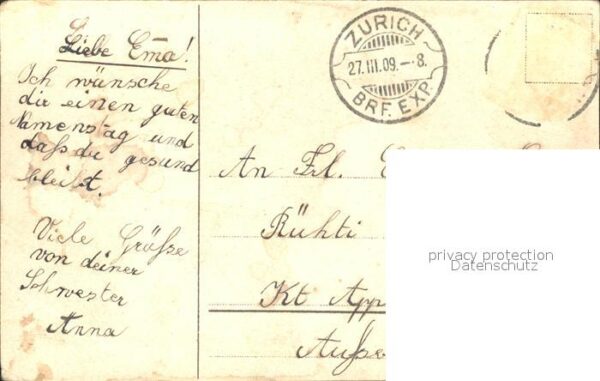 Liebe Em̄a!
Ich wünsche
dir einen guten
Namenstag und
daß du gesund
bleibst.
Viele Grüße
von deiner
Schwester
Anna
ZÜRICH
27.III.09.–8.
BRF. EXP.
An Frl.
Rühti
Kt App
Auße
privacy protection
Datenschutz